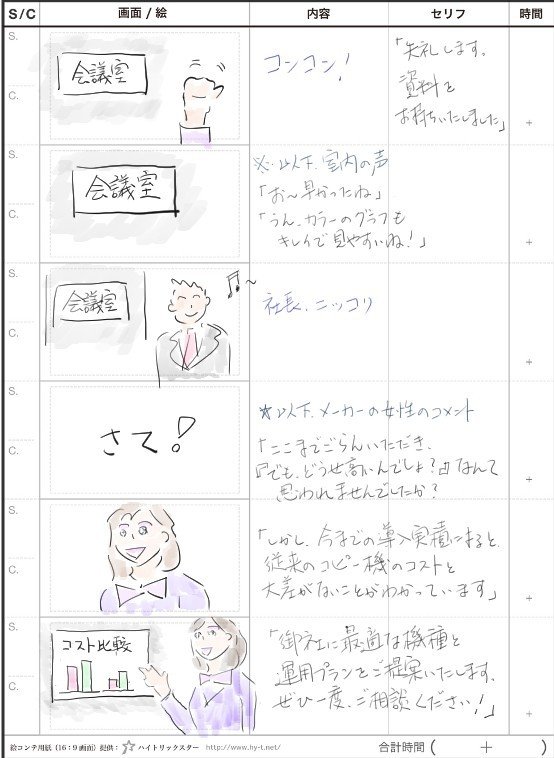 S/C 画面 / 絵 内容 セリフ 時間
S.
C.
会議室
コンコン!
「失礼します。
資料を
お持ちいたしました」
+
S.
C.
会議室
※以下、室内の声
「お〜早かったね」
「うん、カラーのグラフも
キレイで見やすいね!」
+
S.
C.
会議室
社長、ニッコリ
+
S.
C.
さて!
☆以下、メーカーの女性のコメント
「ここまでごらんいただき、
『でも、どうせ高いんでしょ?』なんて
思われませんでしたか?
+
S.
C.
「しかし、今までの導入実績によると、
従来のコピー機のコストと
大差がないことがわかっています」
+
S.
C.
コスト比較
「御社に最適な機種と
運用プランをご提案いたします。
ぜひ一度、ご相談ください!」
+
絵コンテ用紙(16:9画面)提供: ハイトリックスター http://www.hy-t.net/
合計時間 ( + )